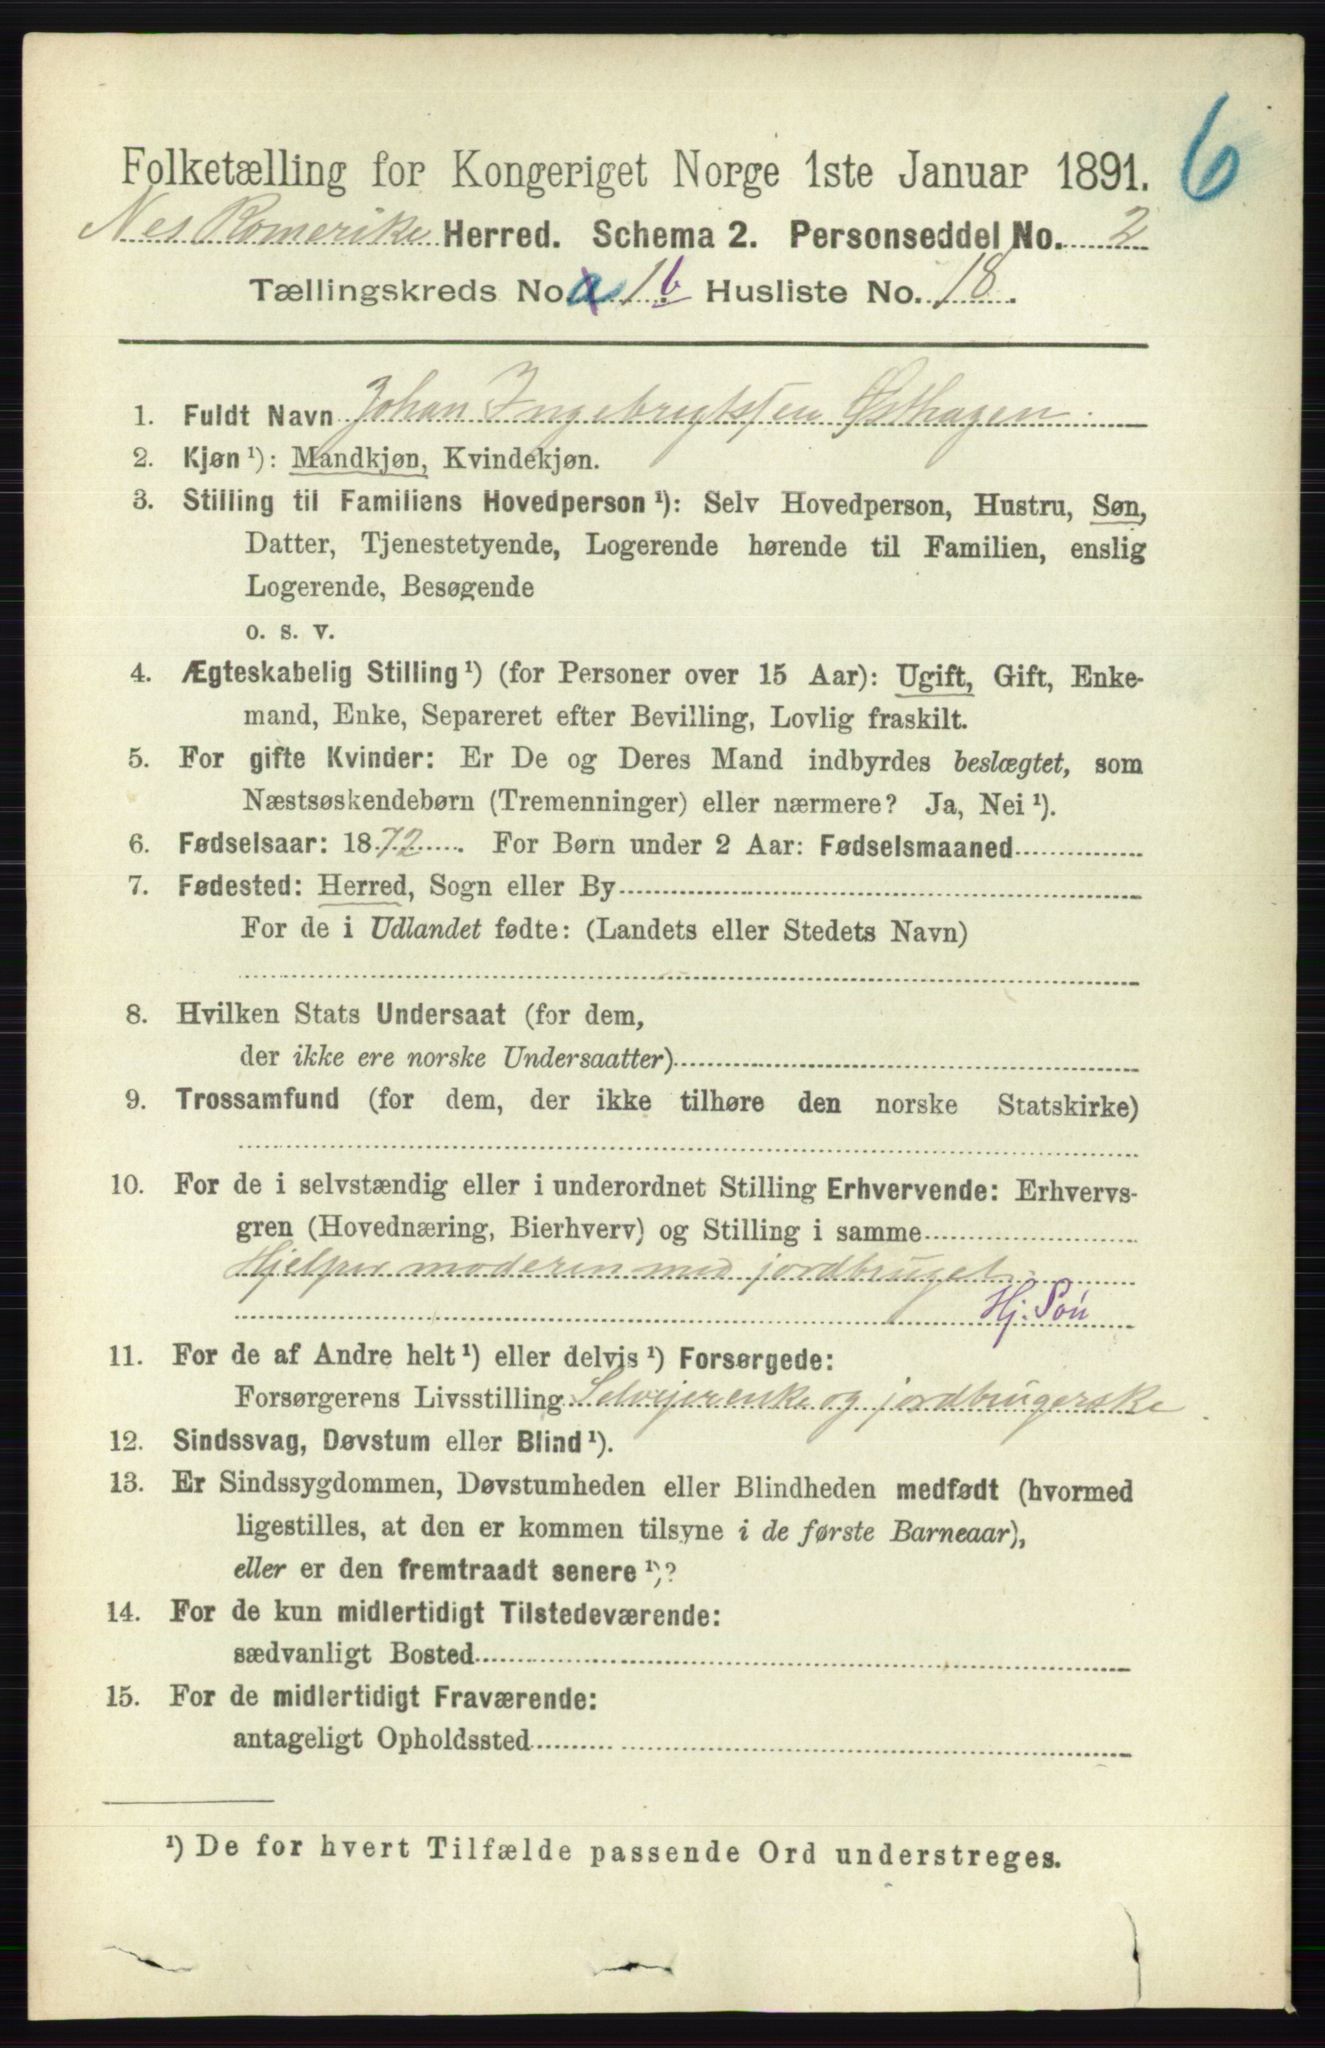 6
Folketælling for Kongeriget Norge 1ste Januar 1891.
Nes Romerike Herred. Schema 2. Personseddel No. 2
Tællingskreds No. a 1 b Husliste No. 18.
1. Fuldt Navn Johan Ingebrigtssen Østhagen.
2. Kjøn ¹): Mandkjøn, Kvindekjøn.
3. Stilling til Familiens Hovedperson ¹): Selv Hovedperson, Hustru, Søn,
Datter, Tjenestetyende, Logerende hørende til Familien, enslig
Logerende, Besøgende
o. s. v.
4. Ægteskabelig Stilling ¹) (for Personer over 15 Aar): Ugift, Gift, Enke-
mand, Enke, Separeret efter Bevilling, Lovlig fraskilt.
5. For gifte Kvinder: Er De og Deres Mand indbyrdes beslægtet, som
Næstsøskendebørn (Tremenninger) eller nærmere? Ja, Nei ¹).
6. Fødselsaar: 1872. For Børn under 2 Aar: Fødselsmaaned
7. Fødested: Herred, Sogn eller By
For de i Udlandet fødte: (Landets eller Stedets Navn)
8. Hvilken Stats Undersaat (for dem,
der ikke ere norske Undersaatter)
9. Trossamfund (for dem, der ikke tilhøre den norske Statskirke)
10. For de i selvstændig eller i underordnet Stilling Erhvervende: Erhvervs-
gren (Hovednæring, Bierhverv) og Stilling i samme
Hjelper moderen med jordbruget.
Hj. Søn
11. For de af Andre helt ¹) eller delvis ¹) Forsørgede:
Forsørgerens Livsstilling Selveierenke og jordbrugerske.
12. Sindssvag, Døvstum eller Blind ¹).
13. Er Sindssygdommen, Døvstumheden eller Blindheden medfødt (hvormed
ligestilles, at den er kommen tilsyne i de første Barneaar),
eller er den fremtraadt senere ¹)?
14. For de kun midlertidigt Tilstedeværende:
sædvanligt Bosted
15. For de midlertidigt Fraværende:
antageligt Opholdssted
¹) De for hvert Tilfælde passende Ord understreges.